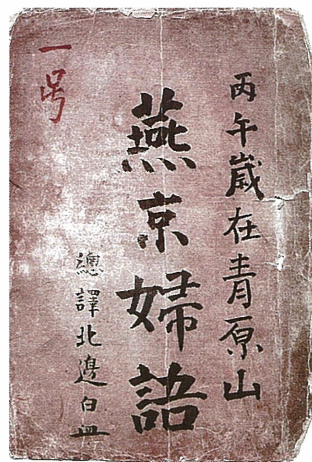 丙午歲在青原山
燕京婦語
總譯北邊白血
一号